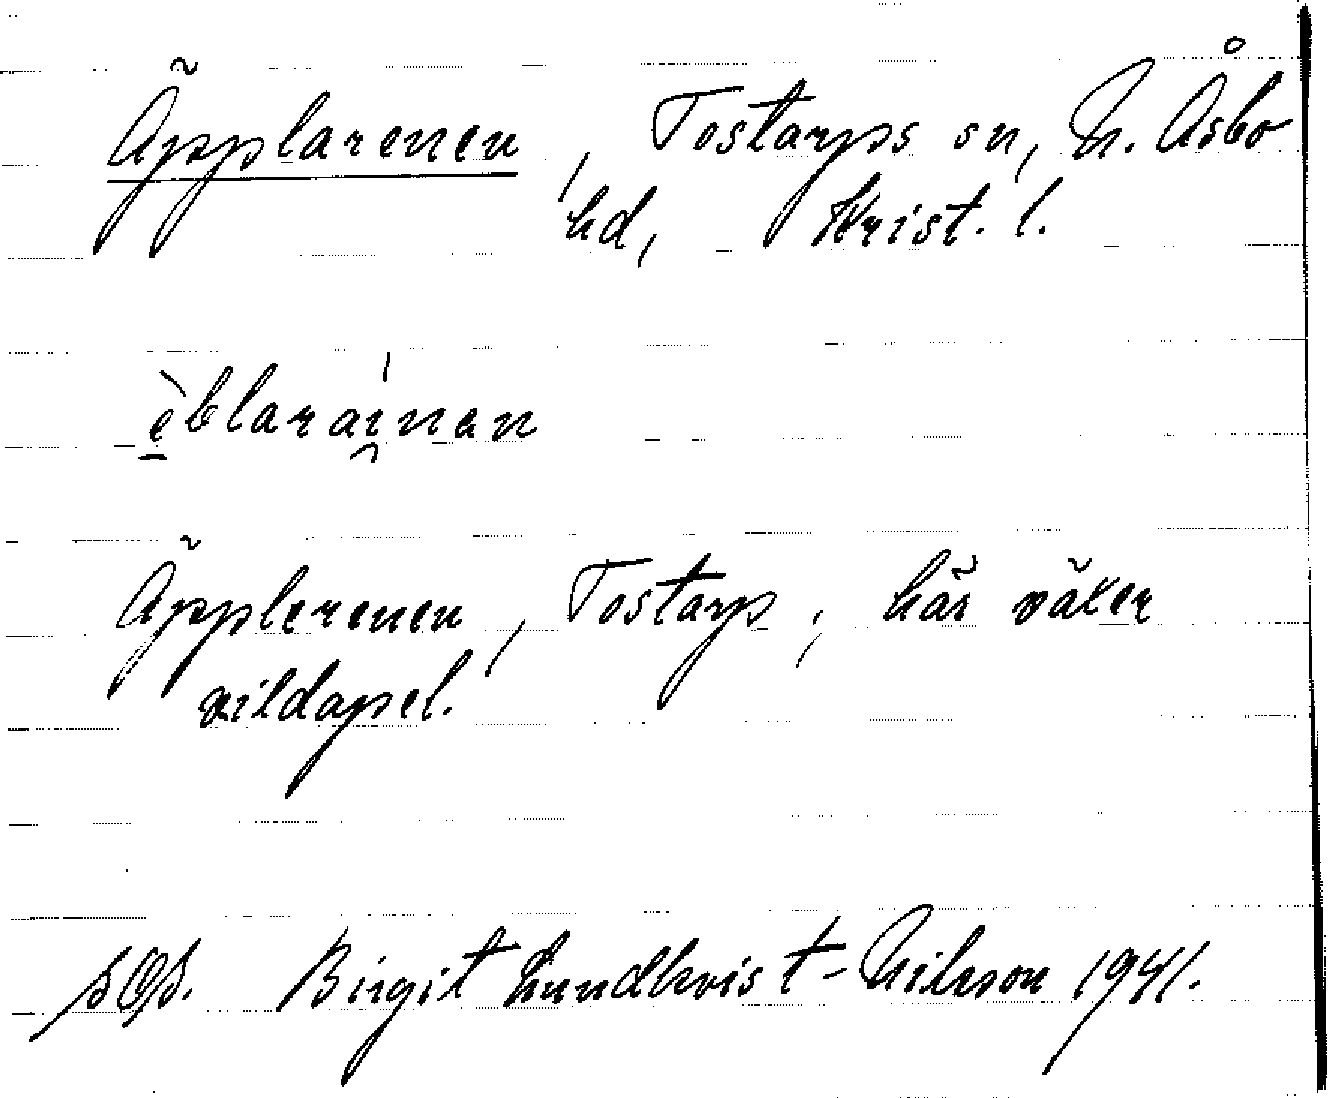 Äpplarenen, Tostarps sn, N. Åsbo
hd, Krist. l.
è̱blarai̯nan
Äpplerenen, Tostarp; här växer
vildapel.
Birgit Lundkvist-Nilsson 1941.